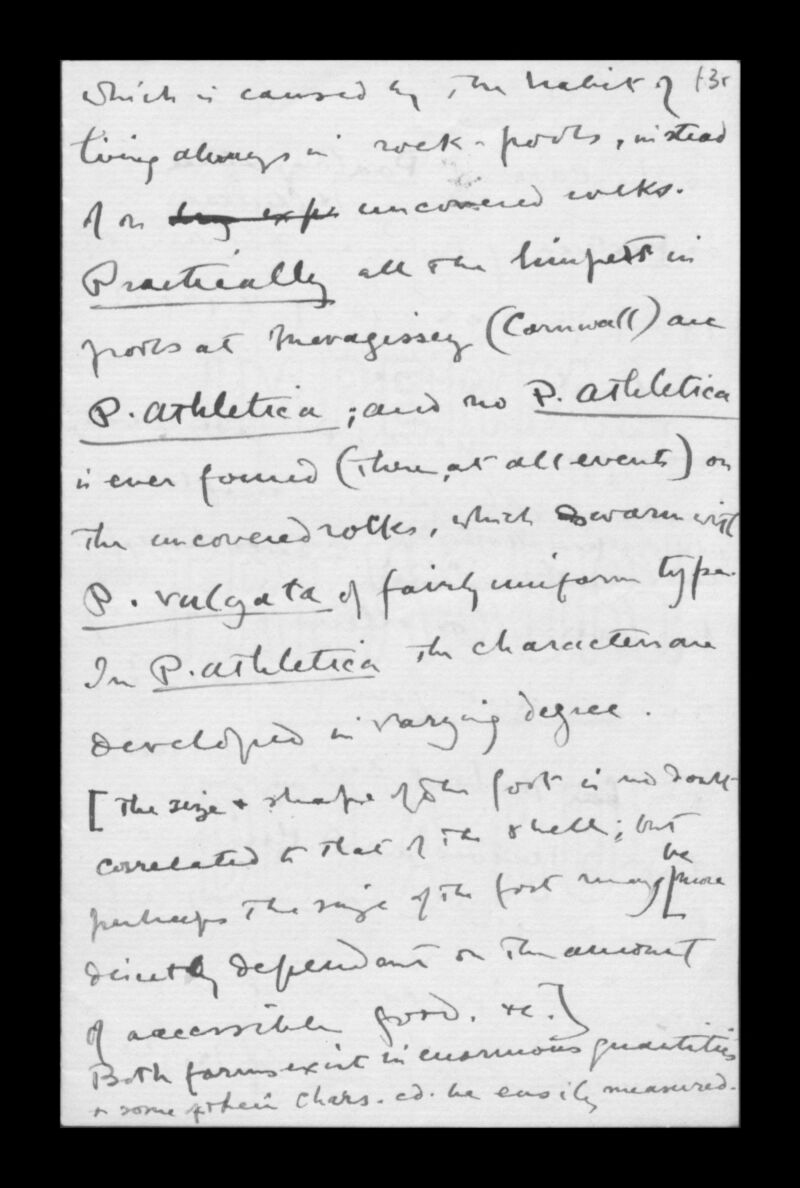 13r
which is caused by the habit of
living always in rock-pools, instead
of on uncovered rocks.
Practically all the limpets in
pools at Mevagissey (Cornwall) are
P. athletica; and no P. athletica
is ever found (there, at all events) on
the uncovered rocks, which swarm with
P. vulgata of fairly uniform type.
In P. athletica the characters are
developed in varying degree.
[The size & shape of the foot is no doubt
correlated to that of the shell; but
perhaps the size of the foot may be more
directly dependant on the amount
of accessible food. &c.]
Both forms exist in enormous quantities
& some of their chars. cd. be easily measured.